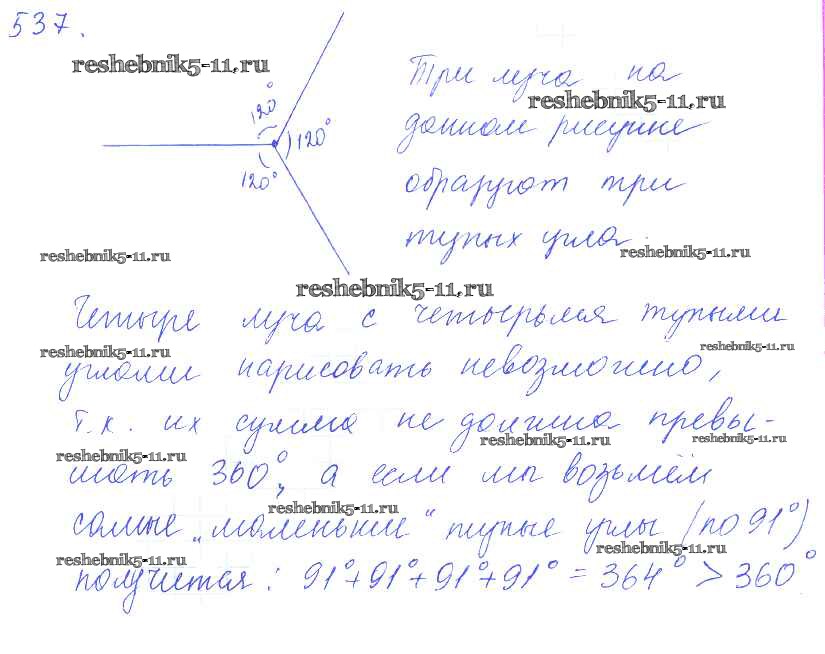 537.
reshebnik5-11.ru
120°
120°
120°
Три луча на
reshebnik5-11.ru
данном рисунке
образуют три
тупых угла.
reshebnik5-11.ru
reshebnik5-11.ru
reshebnik5-11.ru
Четыре луча с четырьмя тупыми
reshebnik5-11.ru
reshebnik5-11.ru
углами нарисовать невозможно,
т.к. их сумма не должна превы-
reshebnik5-11.ru
reshebnik5-11.ru
reshebnik5-11.ru
шать 360°, а если мы возьмём
reshebnik5-11.ru
самые „маленькие“ тупые углы (по 91°)
reshebnik5-11.ru
reshebnik5-11.ru
получится: 91°+91°+91°+91° = 364° > 360°